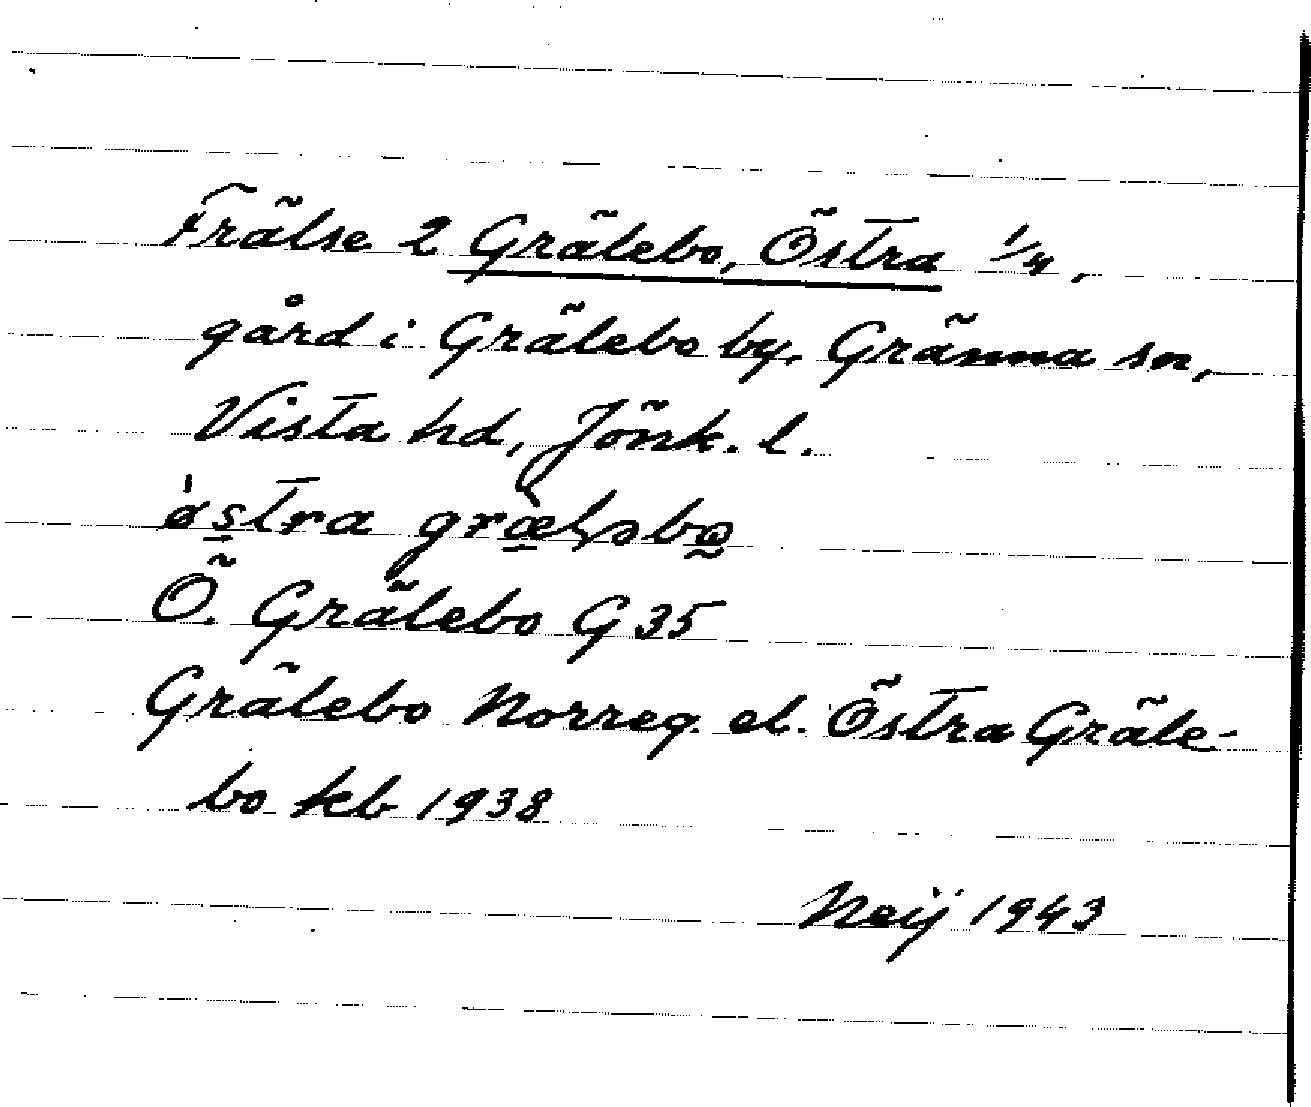 Frälse 2 Grälebo, Östra 1/4,
gård i Grälebo by, Gränna sn,
Vista hd, Jönk. l.
Ö. Grälebo G 35
Grälebo Norreg. el. Östra Gräle-
bo kb 1938
Neij 1943